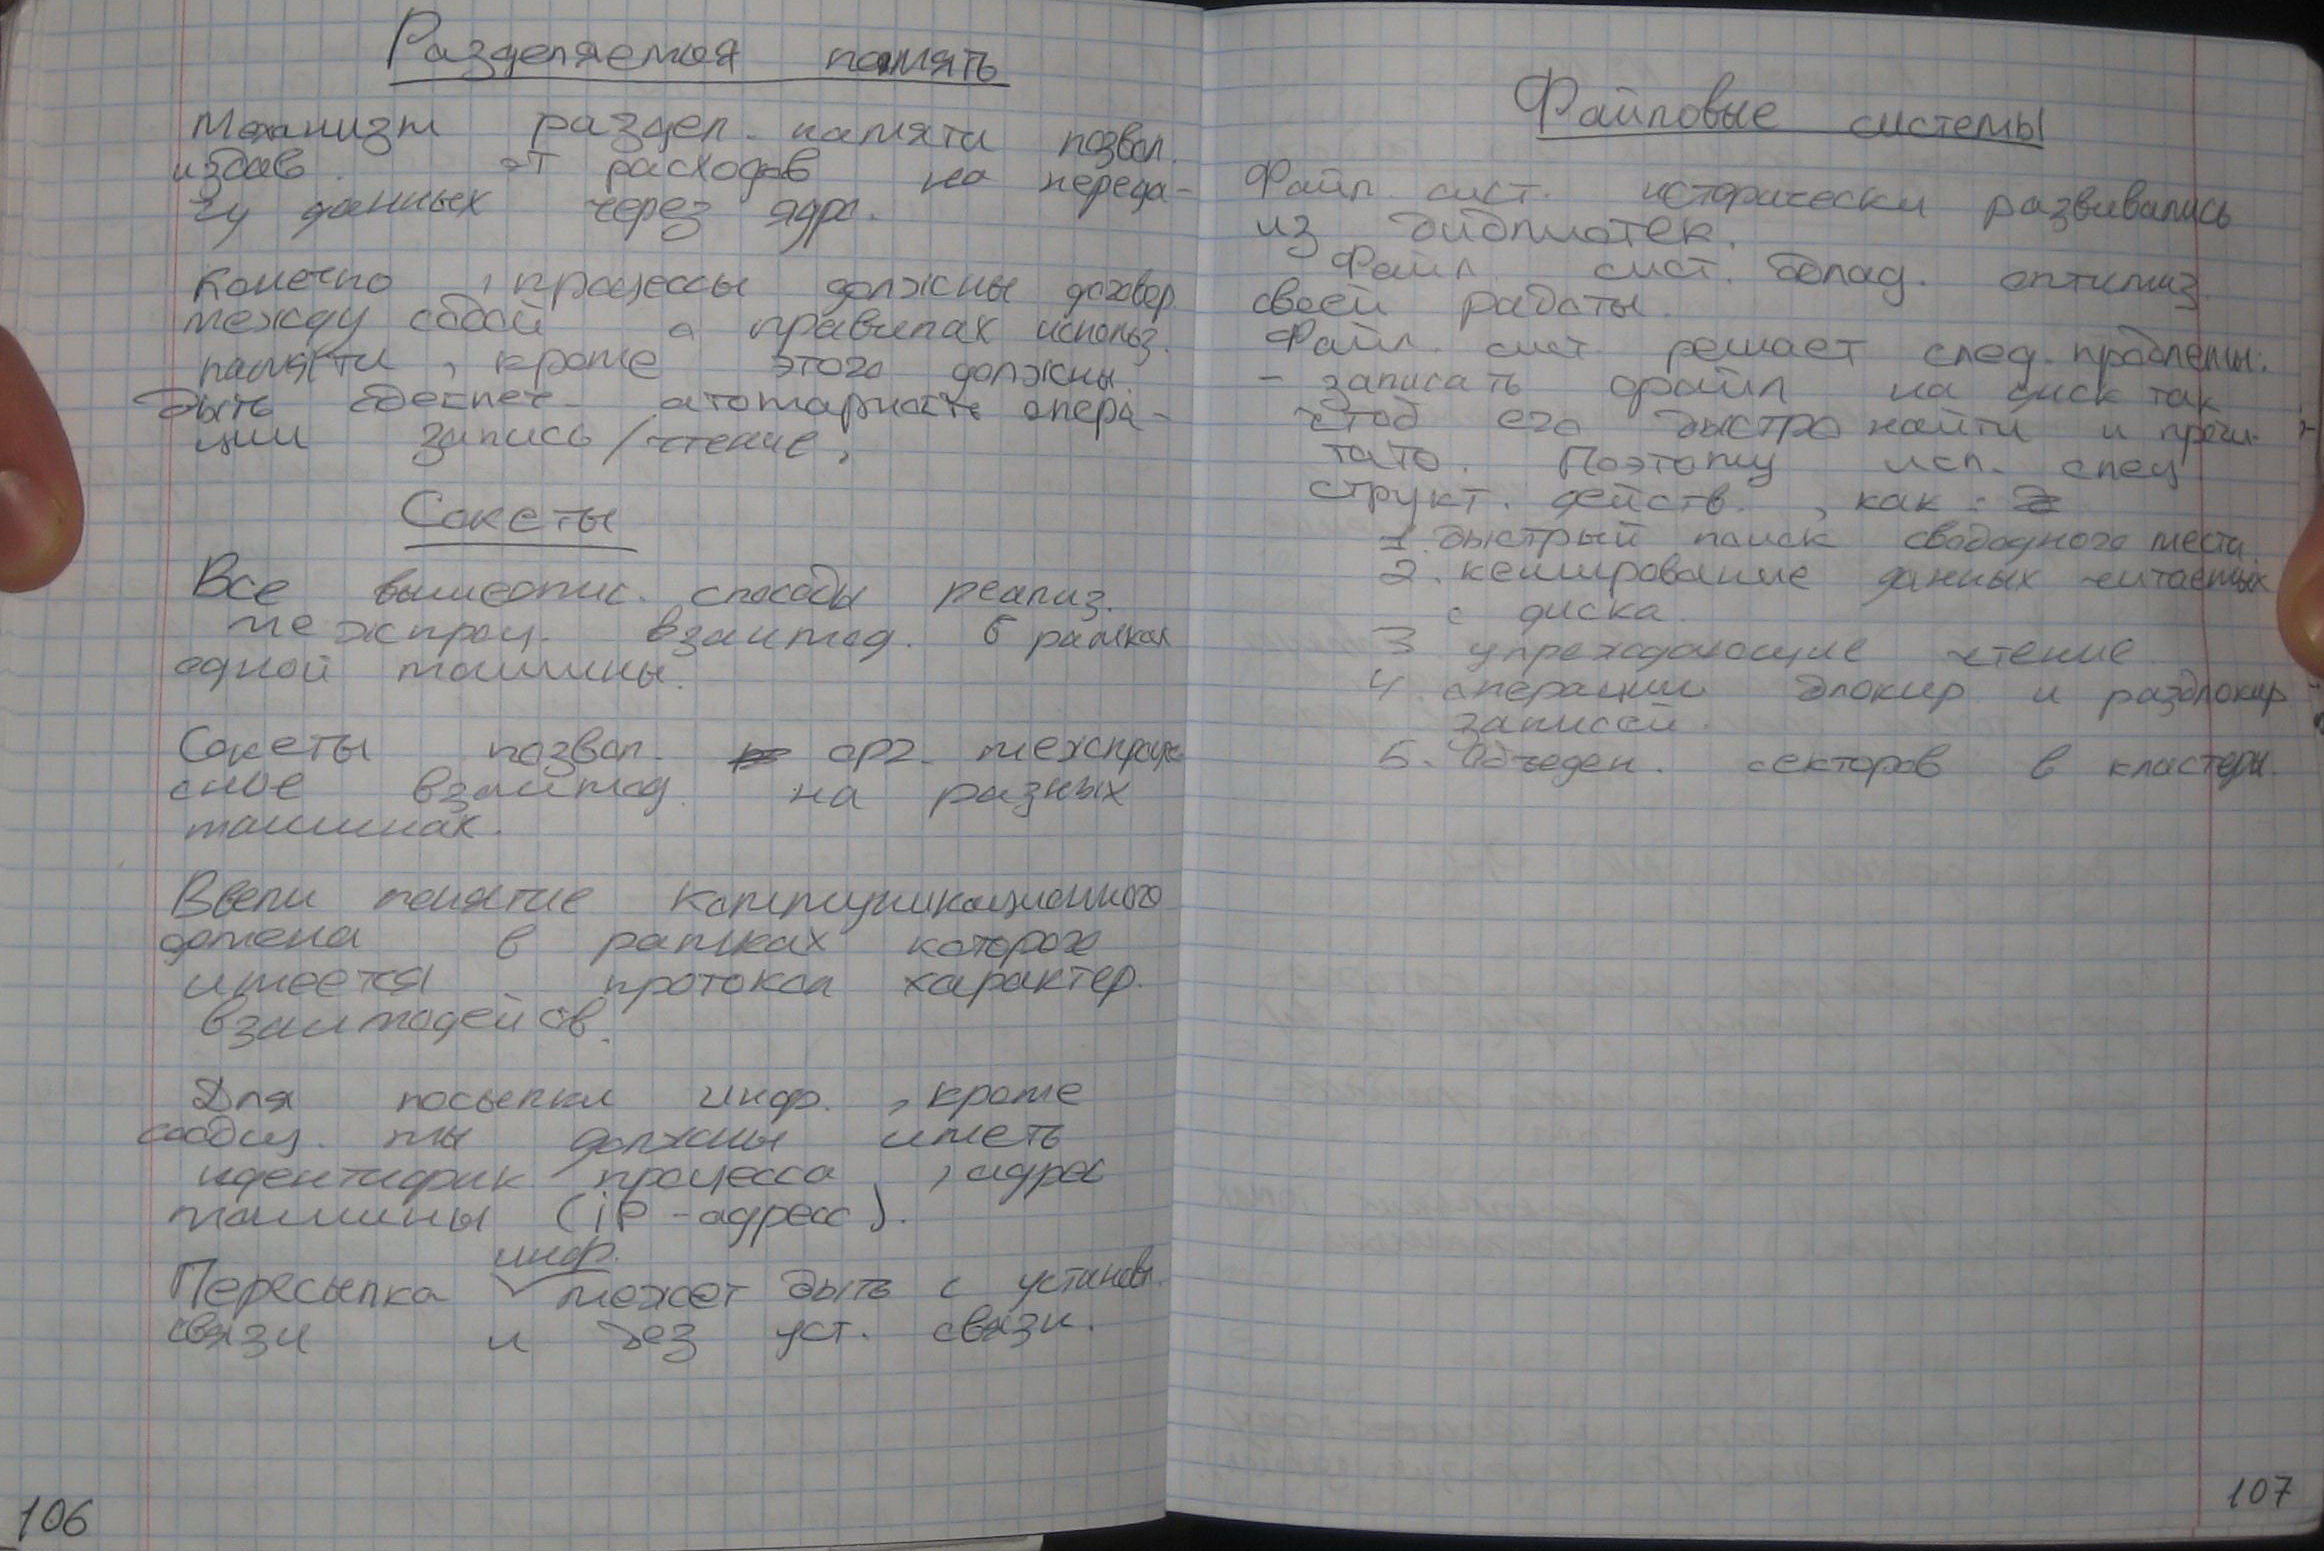 Разделяемая память
Механизм раздел. памяти позвол.
избав. от расходов на переда-
чу данных через ядро.
Конечно, процессы должны договор.
между собой о правилах использ.
памяти, кроме этого должны
быть обеспеч. атомарность опера-
ции запись/чтение.
Сокеты
Все вышеопис. способы реализ.
межпроц. взаимод. в рамках
одной машины.
Сокеты позвол. орг. межпроцес
сное взаимод. на разных
машинах.
Ввели понятие коммуникационного
домена в рамках которого
имеется протокол характер.
взаимодейсв.
Для посылки инф., кроме
сообщ. мы должны иметь
идентифик процесса, адрес
машины (iP-адресс).
инф.
Пересылка может быть с установл.
связи и без уст. связи.
106
Файловые системы
Файл. сист. исторически развивались
из библиотек.
Файл. сист. облад. оптимиз
своей работы.
Файл. сист решает след. проблемы:
- записать файл на диск так
чтоб его быстро найти и прочи-
тать. Поэтому исп. спец
структ. действ., как:
1. быстрый поиск свободного места
2. кеширование данных читаемых
с диска.
3 упреждающие чтение
4. операции блокир и разблокир
записей.
5. Объеден. секторов в кластеры.
107